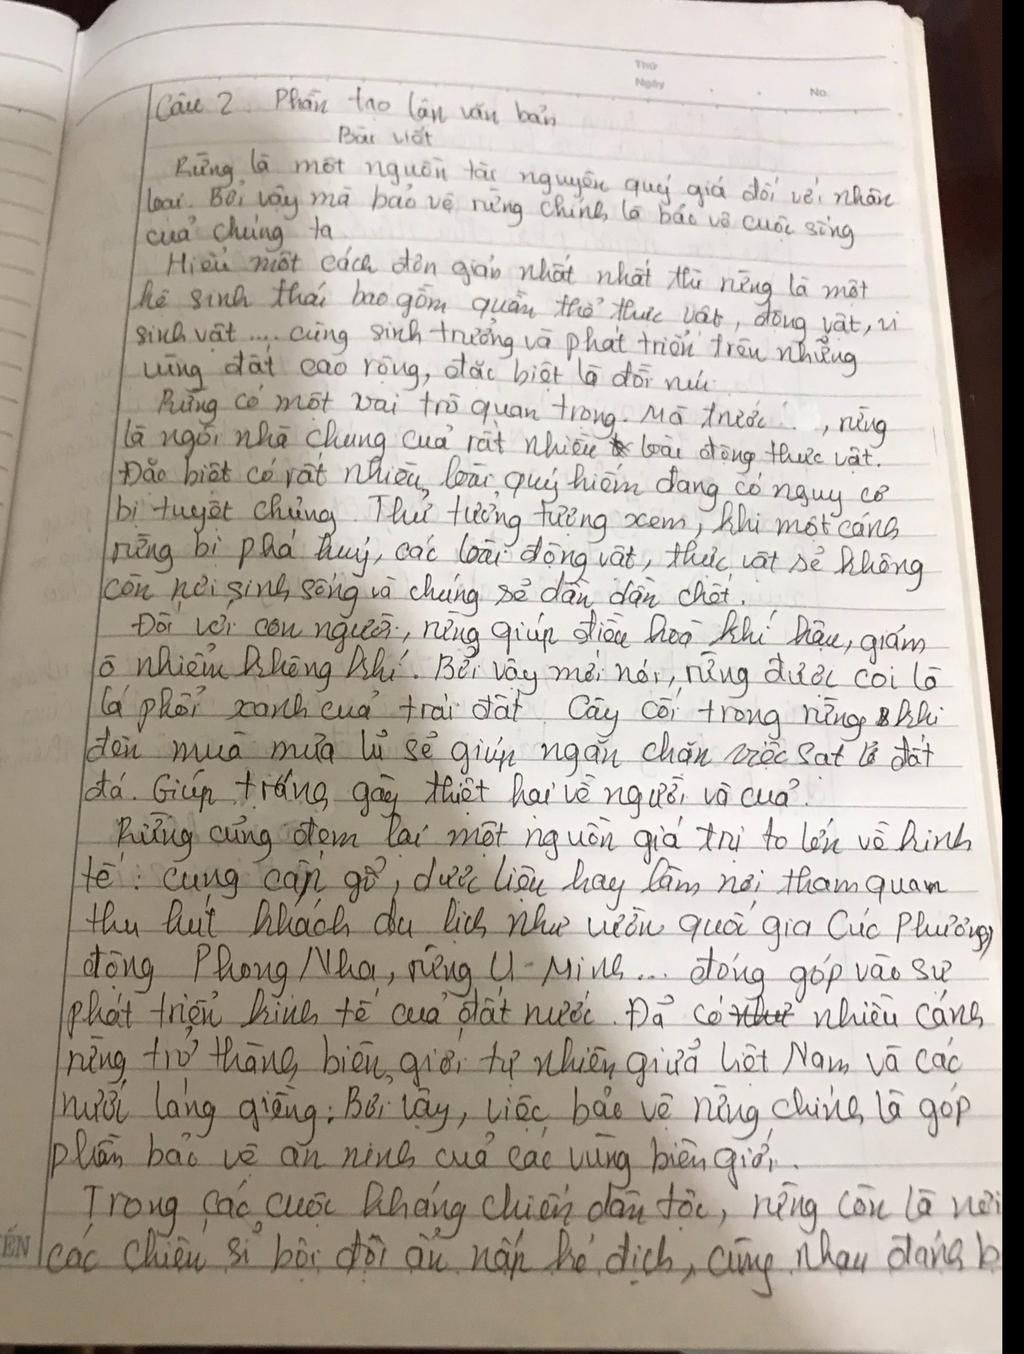 Thứ
Ngày
No.
Câu 2 Phần tạo lập văn bản
Bài viết
Rừng là một nguồn tài nguyên quý giá đối với nhân
loại. Bởi vậy mà bảo vệ rừng chính là bảo vệ cuộc sống
của chúng ta
Hiểu một cách đơn giản nhất nhất thì rừng là một
hệ sinh thái bao gồm quần thể thực vật, động vật, vi
sinh vật .... cùng sinh trưởng và phát triển trên những
vùng đất cao rộng, đặc biệt là đồi núi
Rừng có một vai trò quan trọng. Mà trước , rừng
là ngôi nhà chung của rất nhiều loài động thực vật.
Đặc biệt có rất nhiều loài quý hiếm đang có nguy cơ
bị tuyệt chủng. Thử tưởng tượng xem, khi một cánh
rừng bị phá huỷ, các loài động vật, thực vật sẽ không
còn nơi sinh sống và chúng sẽ dần dần chết.
Đối với con người, rừng giúp điều hoà khí hậu, giảm
ô nhiễm không khí. Bởi vậy mới nói, rừng được coi là
lá phổi xanh của trái đất. Cây cối trong rừng khi
đến mùa mưa lũ sẽ giúp ngăn chặn việc sạt lở đất
đá. Giúp tránh gây thiệt hại về người và của.
Rừng cũng đem lại một nguồn giá trị to lớn về kinh
tế: cung cấp gỗ, dược liệu hay làm nơi tham quan
thu hút khách du lịch như vườn quốc gia Cúc Phương,
động Phong Nha, rừng U-Minh... đóng góp vào sự
phát triển kinh tế của đất nước. Đã có nhiều cánh
rừng trở thành biên giới tự nhiên giữa Việt Nam và các
nước láng giềng. Bởi vậy, việc bảo vệ rừng chính là góp
phần bảo vệ an ninh của các vùng biên giới.
Trong các cuộc kháng chiến dân tộc, rừng còn là nơi
ẾN
các chiến sĩ bộ đội ẩn nấp kẻ địch, cùng nhau đánh b